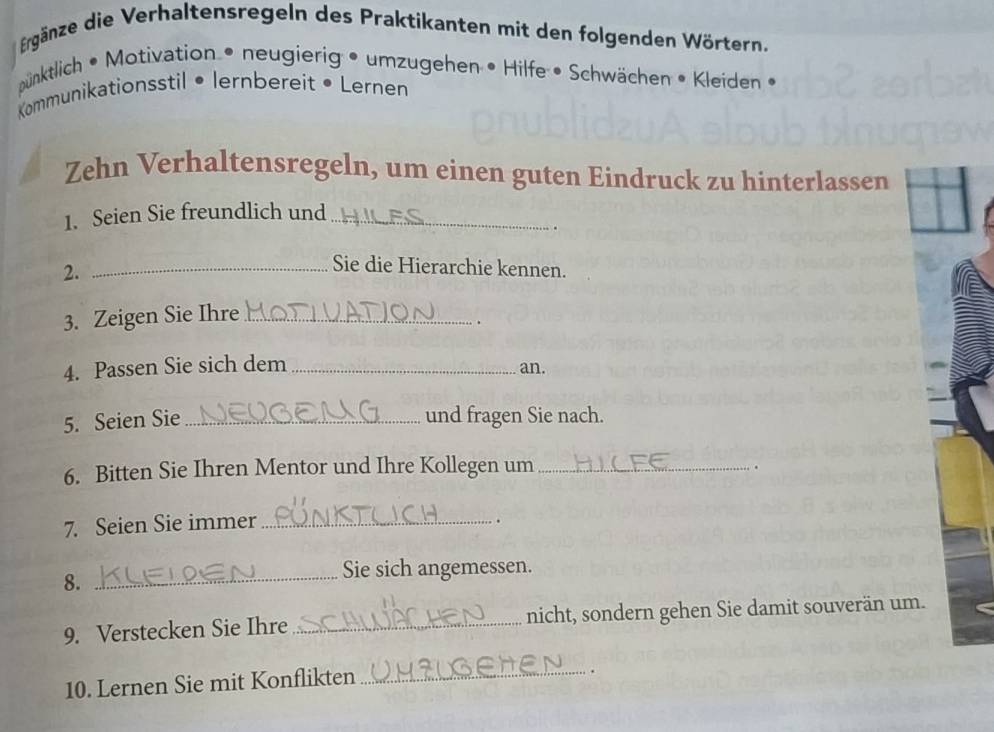 Ergänze die Verhaltensregeln des Praktikanten mit den folgenden Wörtern.
pünktlich • Motivation • neugierig • umzugehen • Hilfe • Schwächen • Kleiden •
Kommunikationsstil • lernbereit • Lernen
Zehn Verhaltensregeln, um einen guten Eindruck zu hinterlassen
1. Seien Sie freundlich und HILFS.
2. Sie die Hierarchie kennen.
3. Zeigen Sie Ihre MOTIVATION.
4. Passen Sie sich dem an.
5. Seien Sie und fragen Sie nach.
6. Bitten Sie Ihren Mentor und Ihre Kollegen um HILFE.
7. Seien Sie immer PÜNKTLICH.
8. KLEIDEN Sie sich angemessen.
9. Verstecken Sie Ihre SCHWÄCHEN nicht, sondern gehen Sie damit souverän um.
10. Lernen Sie mit Konflikten UMZUGEHEN.